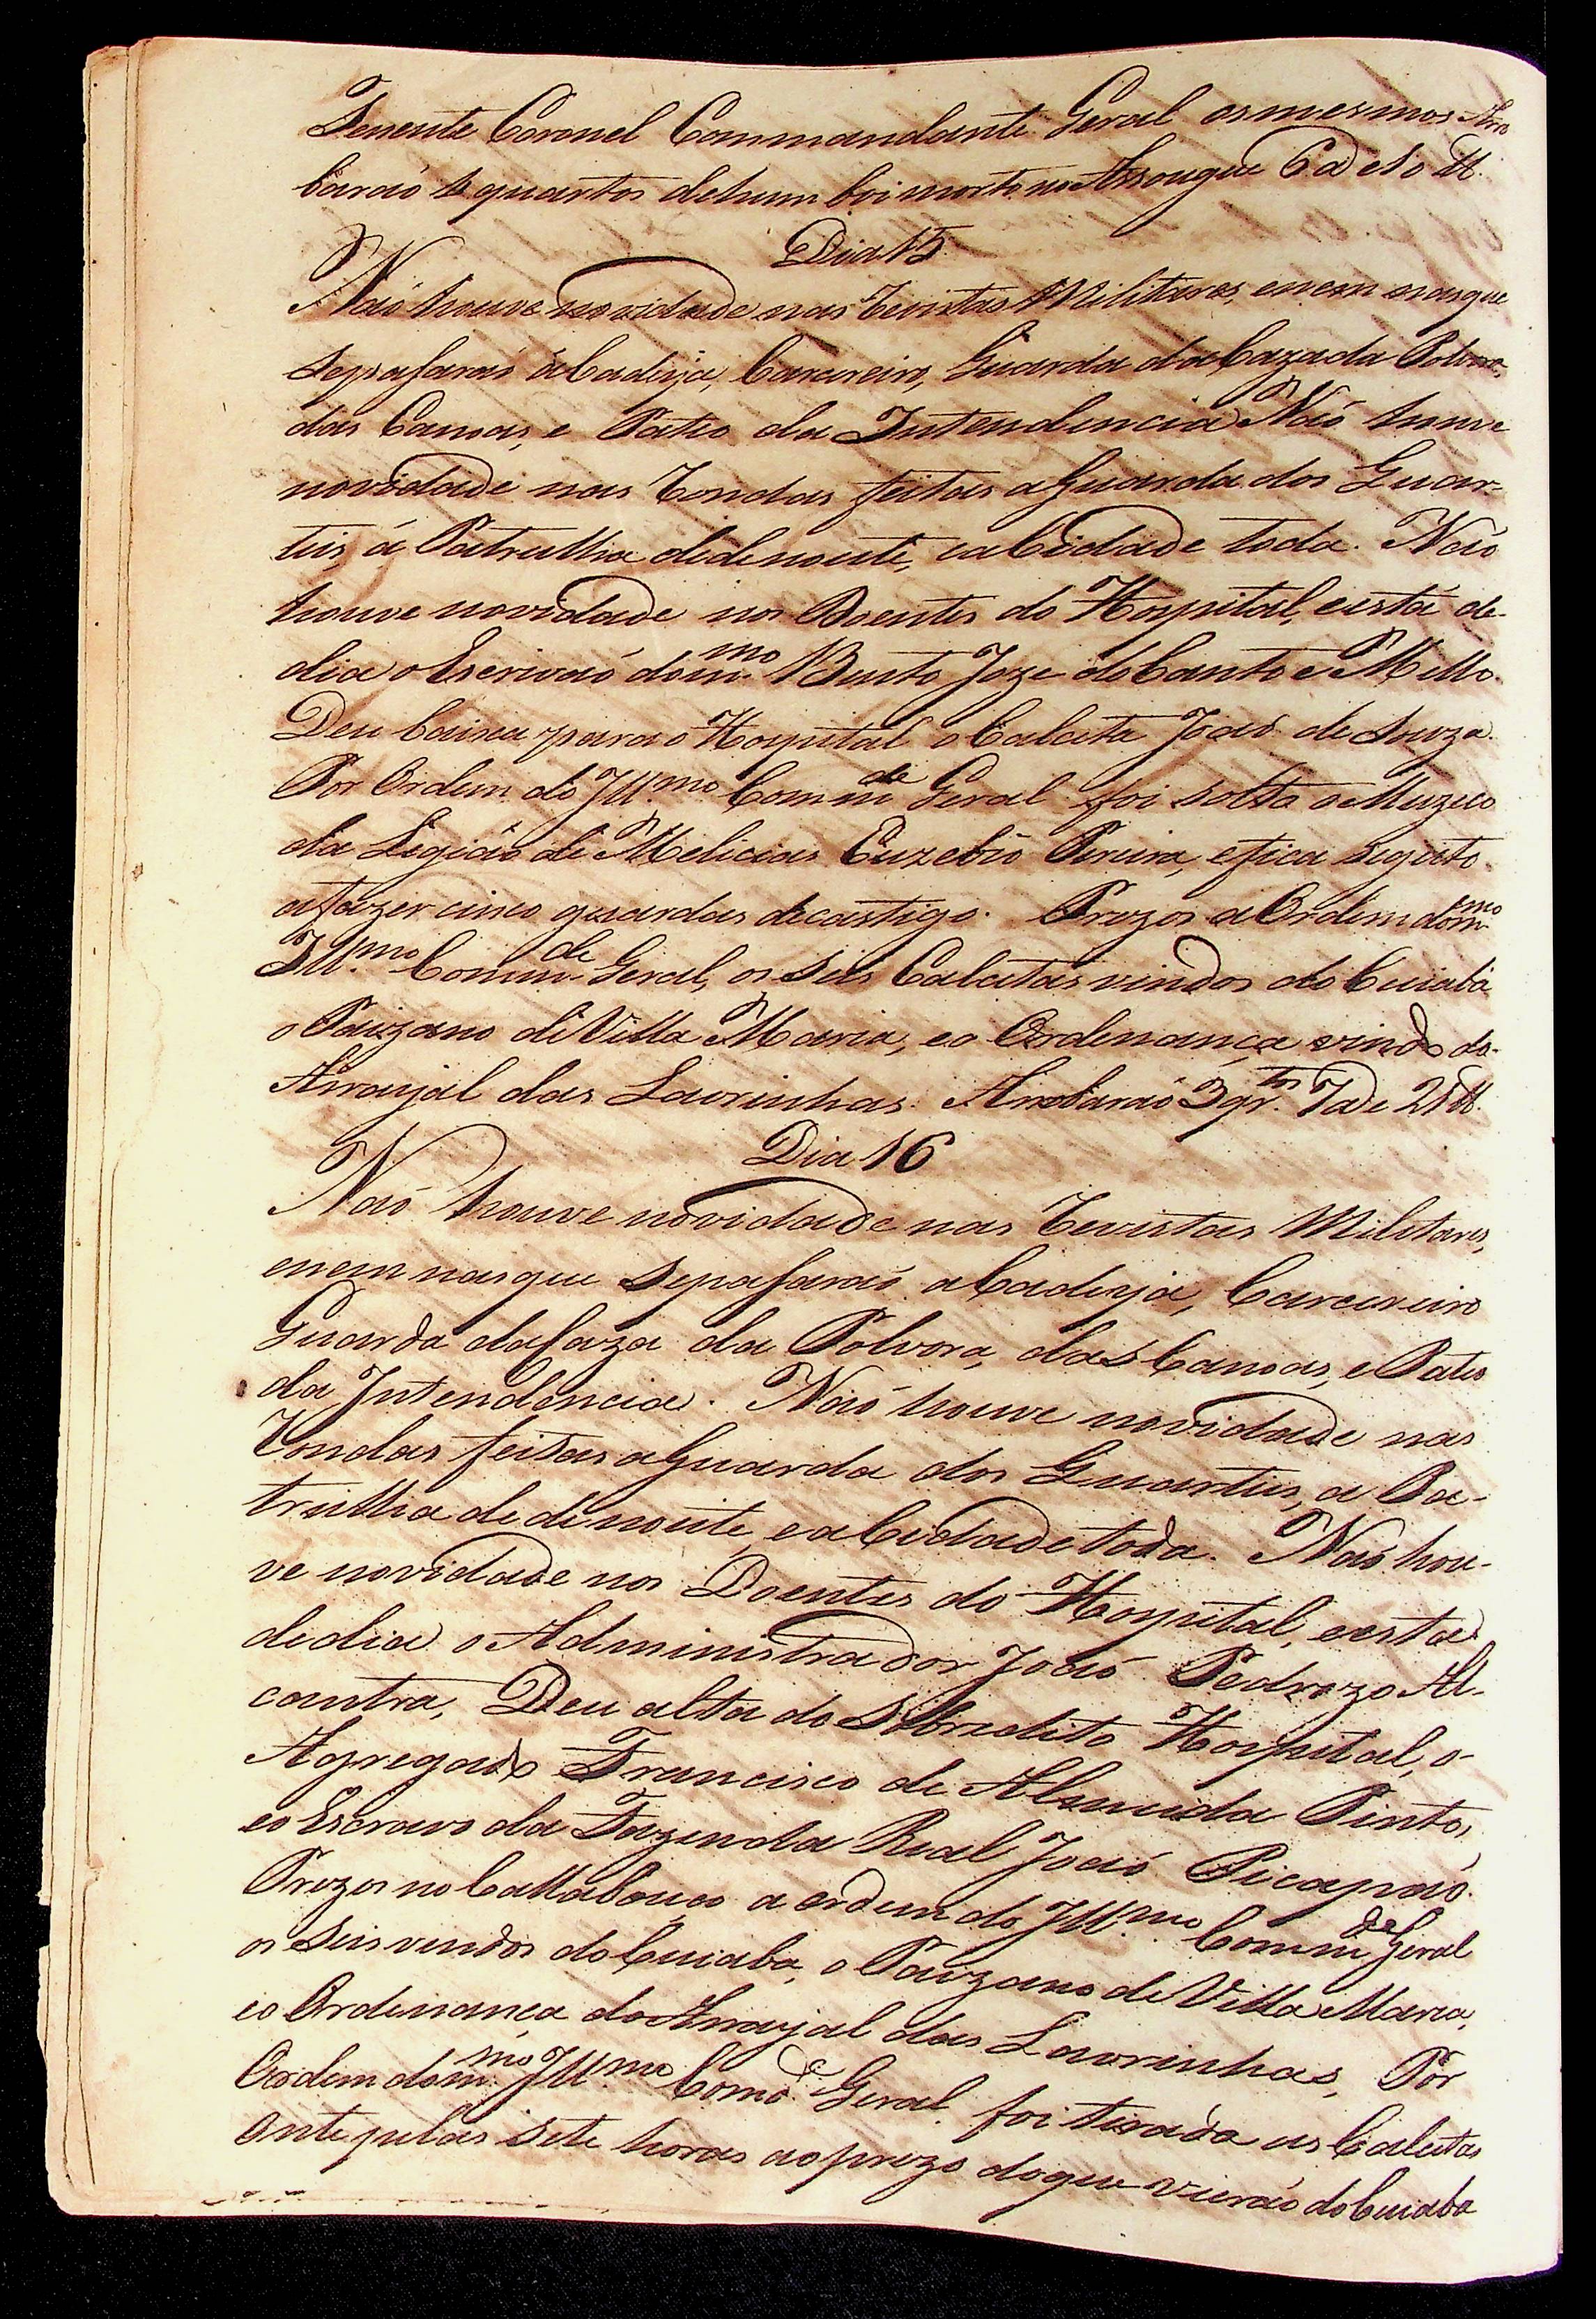 Tenente Coronel Commandante Geral os mesmos Arro
baraõ 4 quartos de hum boi morto no Assougue 6@ e 10 lb.
Dia 15.
Naõ houve novidade nas Revistas Militares, e nem nas que
se pasaraõ á Cadeya, Carcereiro, Guarda da Caza da Polvora,
das Canoas, e Patio da Intendencia. Naõ houve
novidade nas Rondas feitas a Guarda dos Quar-
teis, á Patrulha de de noute, e a Cidade toda. Naõ
houve novidade nos Doentes do Hospital, e está de
dia o Escrivaõ do m.mo Bento Joze do Canto e Mello.
Deu baixa para o Hospital o Calceta Joaõ de Souza.
Por Ordem do Ill.mo Comm.de Geral foi solto o Muzico
da Legiaõ de Melicias Euzebio Pereira, e fica sugeito
a fazer cinco guardas de castigo. Prezos a Ordem do m.mo
Ill.mo Comm.de Geral, os seis Calcetas vindos do Cuiabá
o Paizano de Villa Maria, e o Ordenança vindo do
Arrayal das Lavrinhas. Arrobaraõ 3 qr.tos 7@ e 21 lb.
Dia 16
Naõ houve novidade nas Revistas Militares,
e nem nas que se pasaraõ a Cadeya, Carcereiro
Guarda da Caza da Polvora, das Canoas, e Patio
da Intendencia. Naõ houve novidade nas
Rondas feitas a Guarda dos Quarteis, a Pa-
trulha de de noite, e a Cidade toda. Naõ hou-
ve novidade nos Doentes do Hospital, e esta
de dia o Administrador Joaõ Pedrozo Al-
cantra, Deu alta do Sobredito Hospital, o
Agregado Francisco de Almeida Pinto,
e o Escravo da Fazenda Real Joaõ Picapáo.
Prezos no Callabouço a ordem do Ill.mo Comm.de Geral
os seis vindos do Cuiaba, o Paizano de Villa Maria,
e o Ordenança do Arrayal das Lavrinhas, Por
Ordem do m.mo Ill.mo Comd.e Geral foi tirada as Calcetas
onte pelas sete horas ao prezo do que vieraõ do Cuiaba